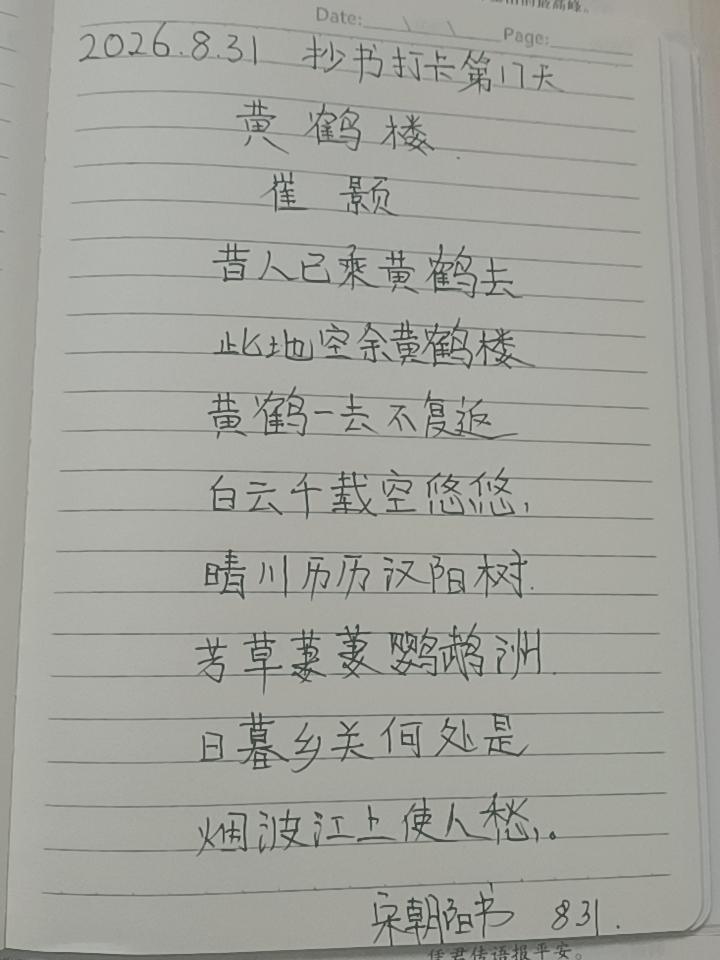 Date: Page:
2026.8.31 抄书打卡第17天
黄鹤楼
崔颢
昔人已乘黄鹤去
此地空余黄鹤楼
黄鹤一去不复返
白云千载空悠悠,
晴川历历汉阳树.
芳草萋萋鹦鹉洲.
日暮乡关何处是
烟波江上使人愁,。
宋朝阳书 831.
凭君传语报平安。